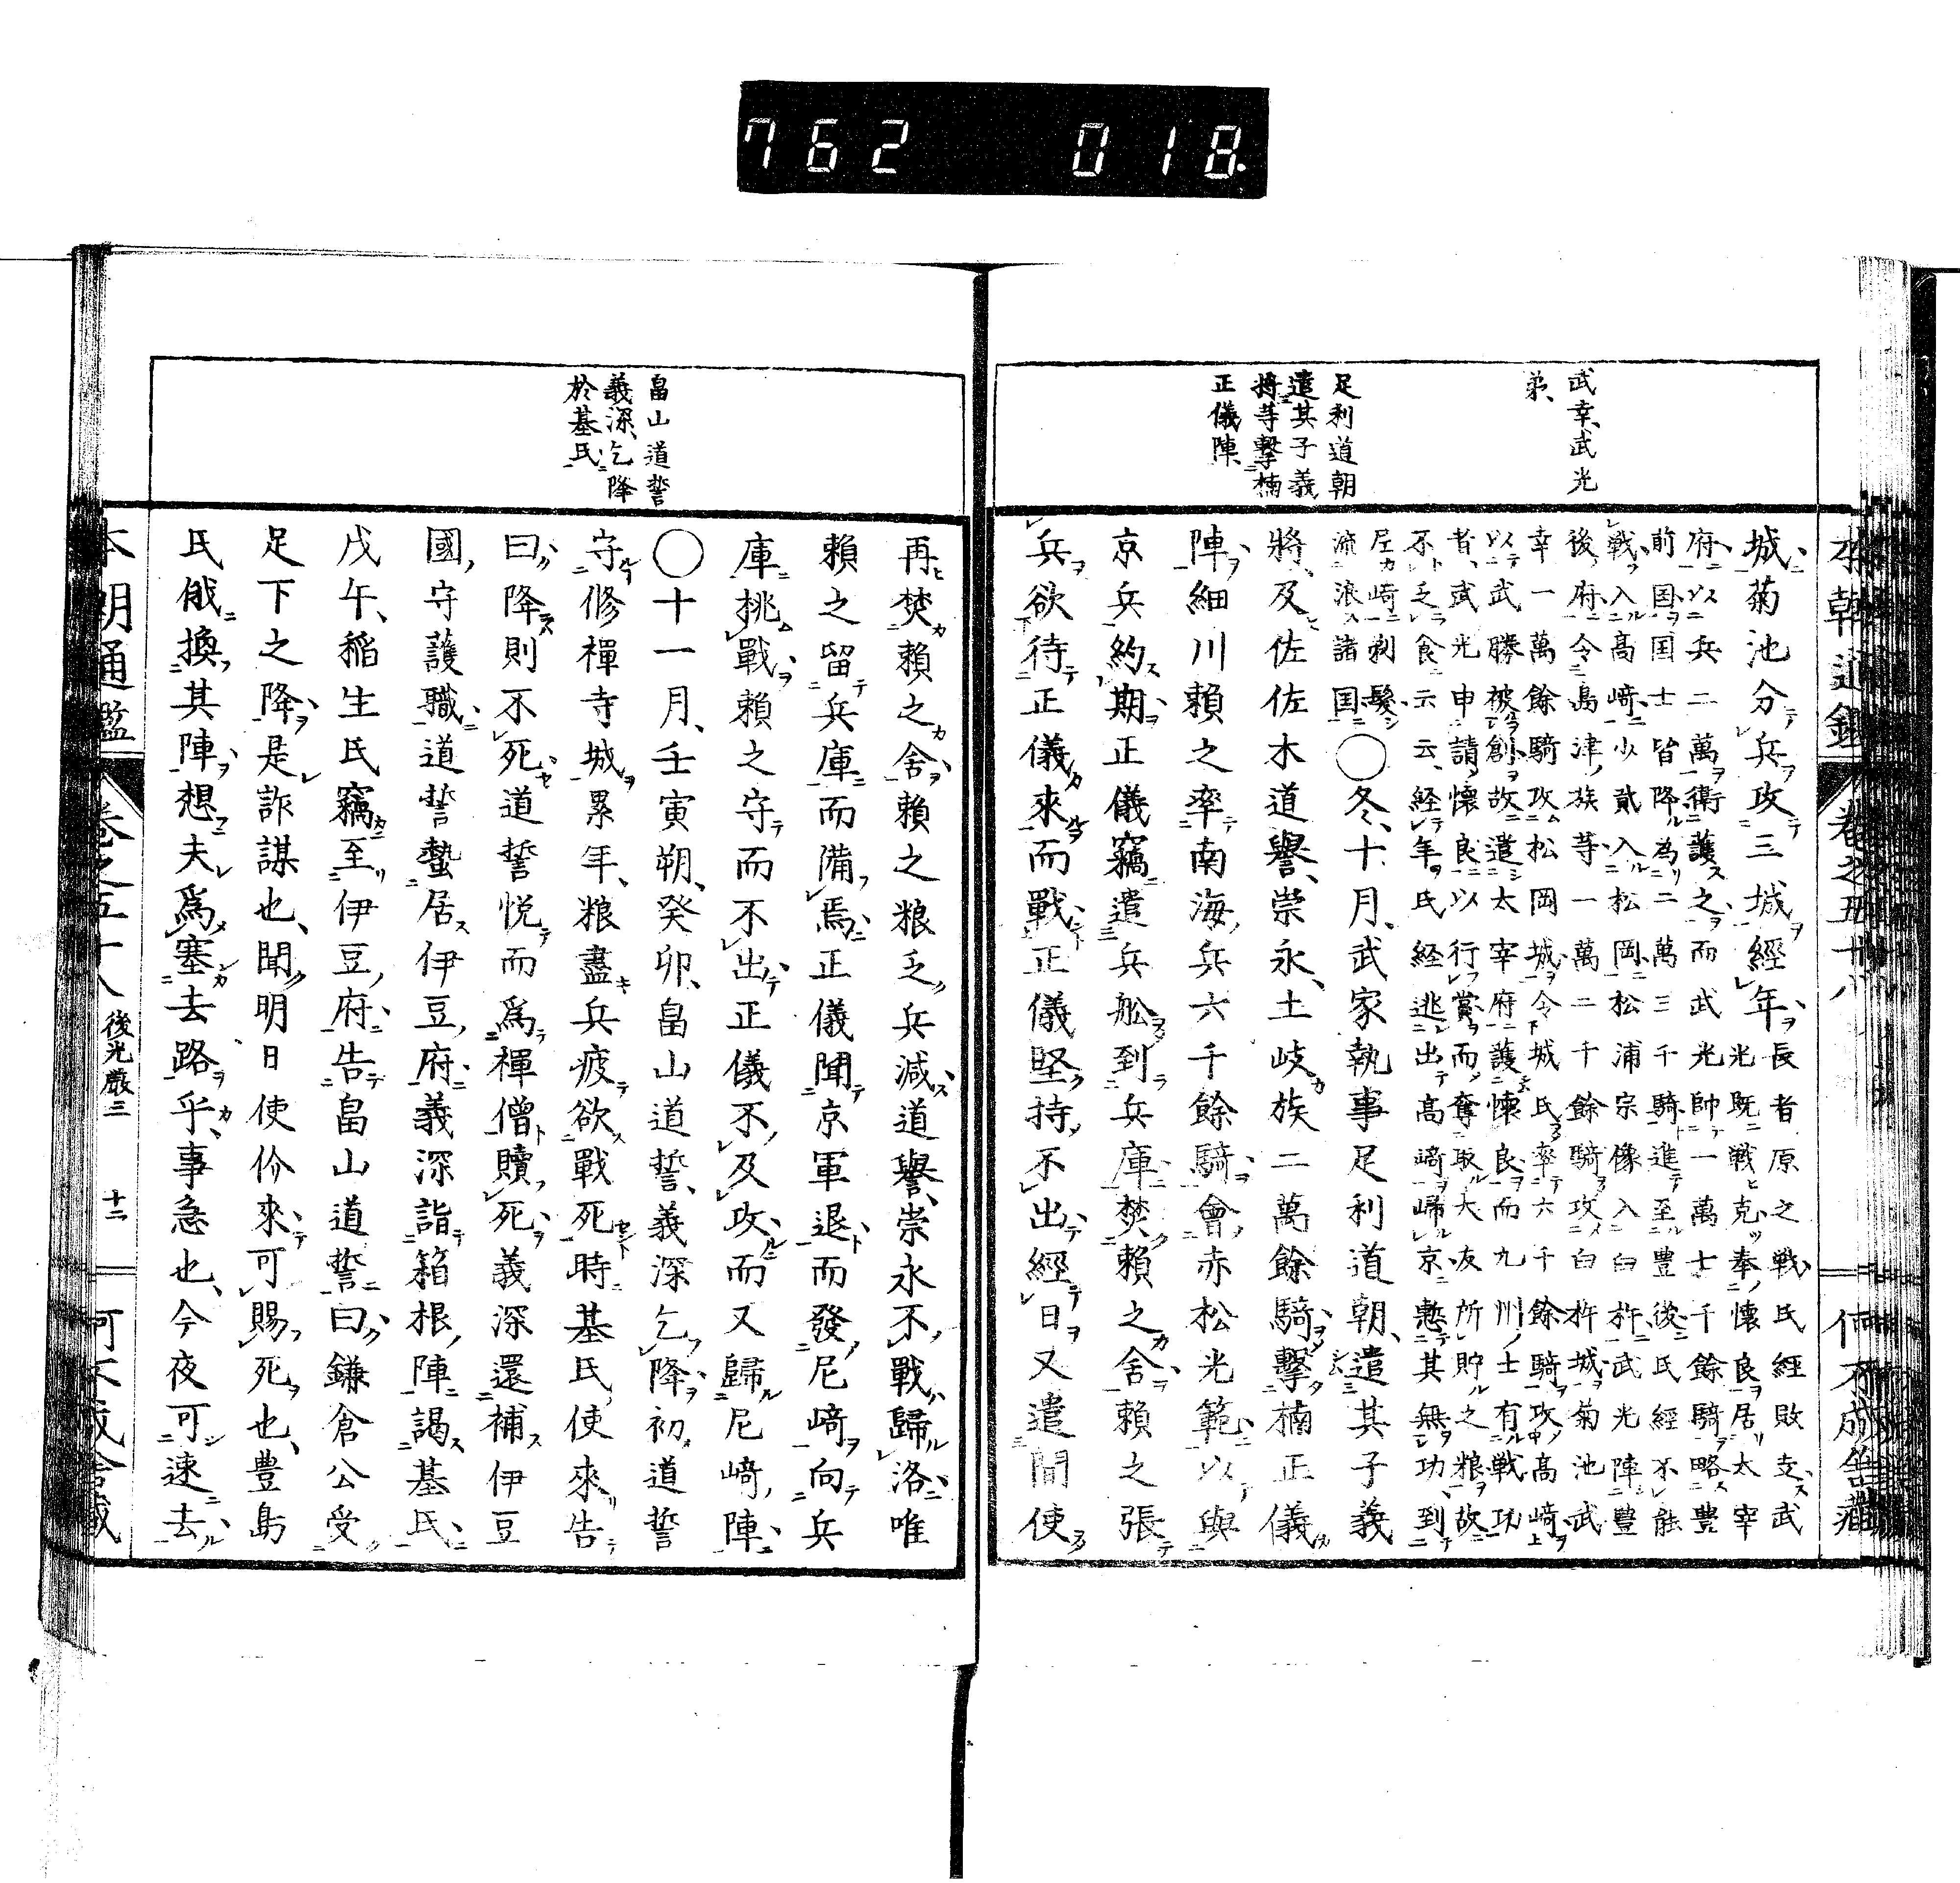 762 018
武幸武光
弟
足利道朝
遣其子義
將等擊楠
正儀陣
城菊池分兵攻三城經年
長者原之戰氏經敗走武
光既戰克奉懷良居太宰
府以兵二萬衛護之而武光帥一萬士千餘騎略豊
前国国士皆降為二萬三千騎進至豊後氏經不能
戰入高﨑少貳入松岡松浦宗像入臼杵武光陣豊
後府令島津族等一萬二千餘騎攻臼杵城菊池武
幸一萬餘騎攻松岡城令城氏率六千餘騎攻高﨑
以武勝被創故遣太宰府護懷良而九州士有戰功
者武光申請懷良以行賞而奪取大友所貯之粮故
不乏食云云経年氏経逃出高﨑歸京慙其無功到
尼﨑剃髮
流浪諸国
〇冬十月武家執事足利道朝遣其子義
將及佐佐木道譽崇永土岐族二萬餘騎擊楠正儀
陣細川賴之率南海兵六千餘騎會赤松光範以與
京兵約期正儀竊遣兵舩到兵庫焚賴之舍賴之張
兵欲待正儀來而戰正儀堅持不出經日又遣間使
本朝通鑑 卷之五十八 何不成舎藏
畠山道誓
義深乞降
於基氏
再焚賴之舍賴之粮乏兵減道譽崇永不戰歸洛唯
賴之留兵庫而備焉正儀聞京軍退而發尼﨑向兵
庫挑戰賴之守而不出正儀不及攻而又歸尼﨑陣
〇十一月壬寅朔癸卯畠山道誓義深乞降初道誓
守修禪寺城累年粮盡兵疲欲戰死時基氏使來告
曰降則不死道誓悅而爲禪僧贖死義深還補伊豆
國守護職道誓蟄居伊豆府義深詣箱根陣謁基氏
戊午稲生氏竊至伊豆府告畠山道誓曰鎌倉公受
足下之降是詐謀也聞明日使伱來可賜死也豊島
氏俄換其陣想夫爲塞去路乎事急也今夜可速去
本朝通鑑 卷之五十八 後光嚴三 十二 何不成舎藏